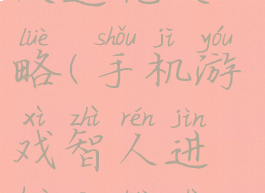 lüè shǒu jī yóu
略(手机游
xì zhì rén jìn
戏智人进